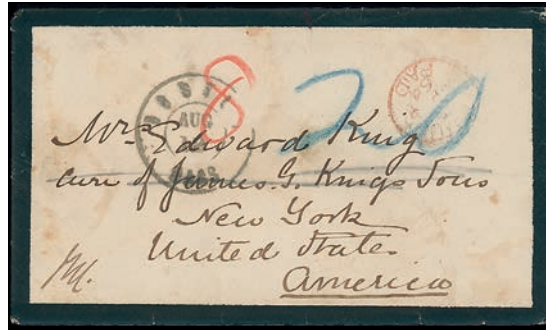 AUG
8 20
Mrs. Edward King
care of James G. King's Sons
New York
United States
America